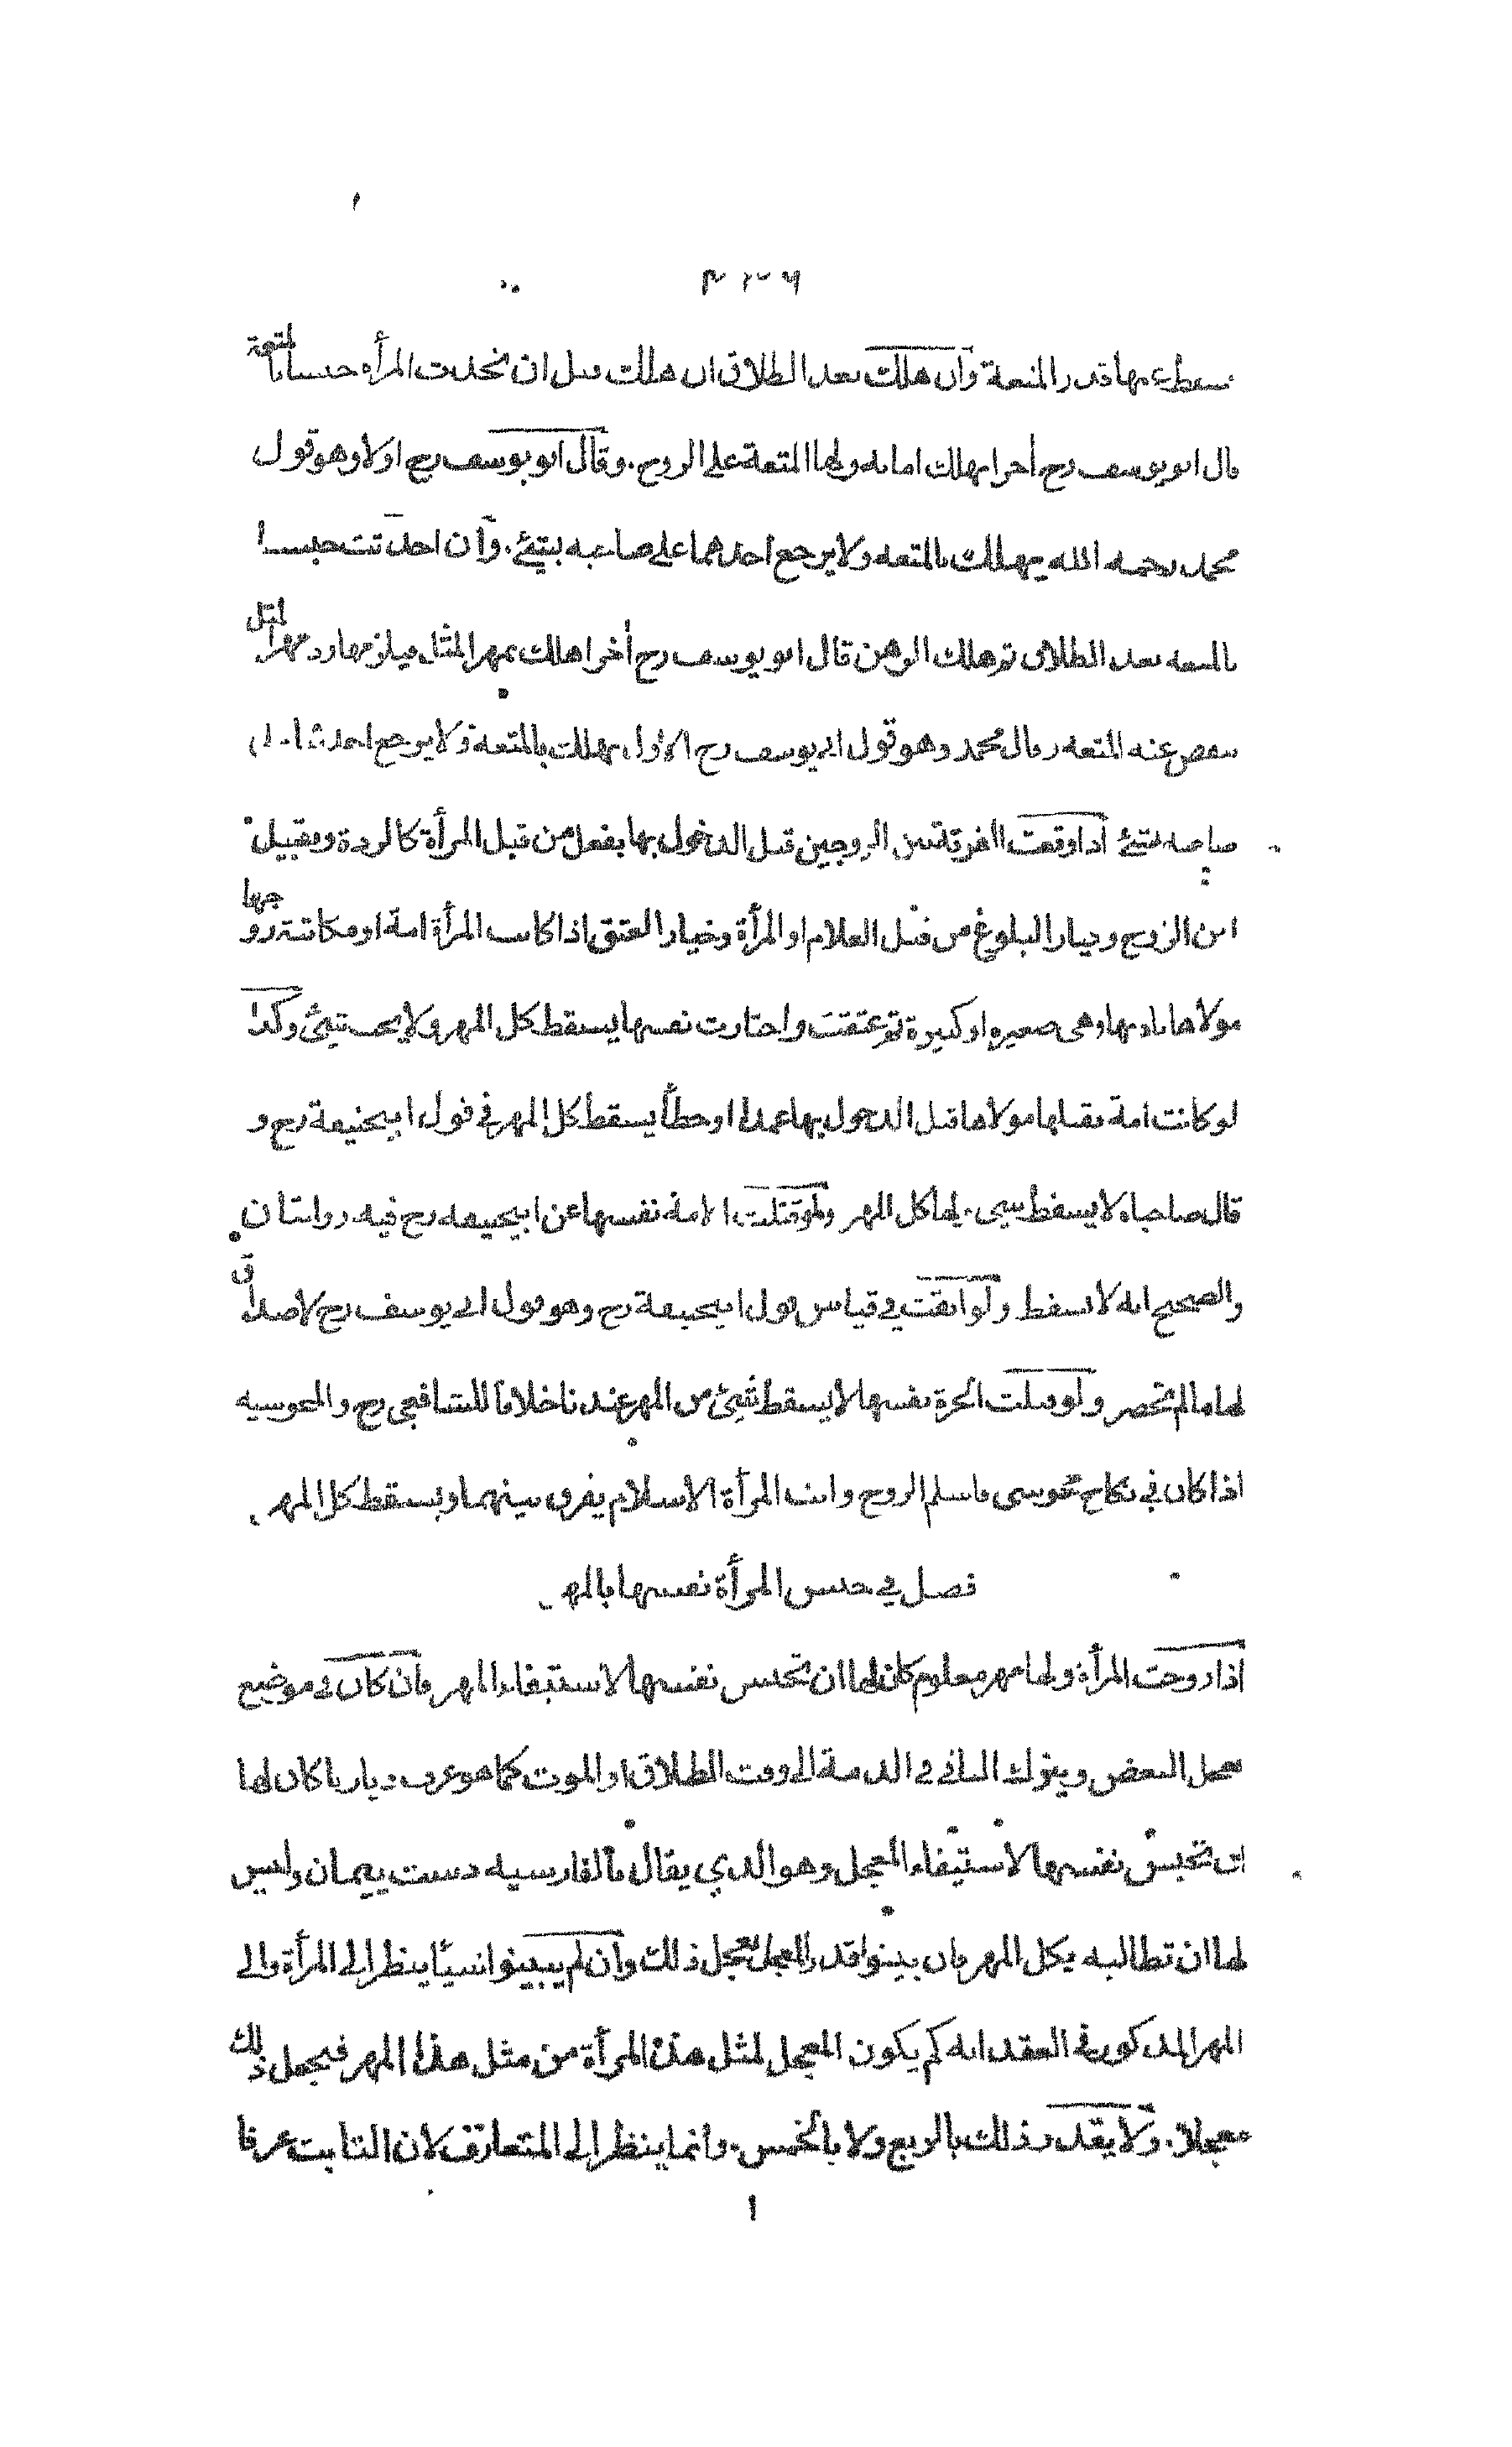 ٤٢٦
فسقط عنها قدر المتعة وان هلك بعد الطلاق ان هلك قبل ان تحدث المرأة حبسا بالمتعة
قال ابو يوسف رح أخرا يهلك امانه ولها المتعة على الزوج. وقال ابو يوسف رح اولا وهو قول
محمد رحمه الله يهلك بالمتعه ولا يرجع احدهما على صاحبه بشئ. وان احدثت حبسا
بالمتعه بعد الطلاق ثم هلك الرهن قال ابو يوسف رح أخرا هلك بمهر المثل فيلزمها رد مهر المثل
ينقص عنه المتعه وقال محمد وهو قول ابي يوسف رح الاول يهلك بالمتعة ولا يرجع احدهما على
صاحبه بشئ اذا وقعت الفرقة بين الزوجين قبل الدخول بها بفعل من قبل المرأة كالردة وتقبيل
ابن الزوج وخيار البلوغ من قبل الغلام او المرأة وخيار العتق اذا كانت المرأة امة او مكاتبة زوجها
مولاها باذنها وهى صغيره او كبيرة ثم عتقت واختارت نفسها يسقط كل المهر ولا يجب شئ وكذا
لو كانت امة فقتلها مولاها قبل الدخول بها عمدا او خطأ يسقط كل المهر في قول ابيحنيفة رح و
قال صاحباه لا يسقط شئ. لها كل المهر ولو قتلت الامة نفسها عن ابيحنيفه رح فيه روايتان
والصحيح انه لا يسقط ولو ابقت في قياس قول ابيحنيفة رح وهو قول ابي يوسف رح لا صداق
لها مالم تحضر ولو قتلت الحرة نفسها لا يسقط شئ من المهر عندنا خلافا للشافعي رح والمجوسيه
اذا كان في نكاح مجوسى فاسلم الزوج وابت المرأة الاسلام يفرق بينهما ويسقط كل المهر
فصل في حبس المرأة نفسها بالمهر
اذا زوجت المرأة ولها مهر معلوم كان لها ان تحبس نفسها لاستيفاء المهر فان كان في موضع
يعجل البعض ويترك الباقي في الذمة الى وقت الطلاق او الموت كما هو عرف ديارنا كان لها
ان تحبس نفسها لاستيفاء المعجل وهو الذي يقال بالفارسيه دست پيمان وليس
لها ان تطالبه بكل المهر فان بينوا قدر المعجل يعجل ذلك وان لم يبينوا شيأ ينظر الى المرأة والى
المهر المذكور في العقد انه كم يكون المعجل لمثل هذه المرأة من مثل هذا المهر فيجعل ذلك
معجلا. ولا يقدر ذلك بالربع ولا بالخمس. وانما ينظر الى المتعارف لان الثابت عرفا